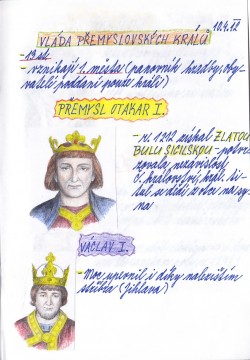 10.4.12
VLÁDA PŘEMYSLOVSKÝCH KRÁLŮ
- 13. stol.
- vznikají 1. města (panovník hradby, oby-
vatelé poddaní pouze králi)
PŘEMYSL OTAKAR I.
- r. 1212 získal ZLATOU
BULU SICILSKOU - potvr-
zovala nezávislost
Č. království, král. ti-
tul se dědí z otce na sy-
na.
VÁCLAV I.
- Moc upevnil i díky nalezištím
stříbra (Jihlava)